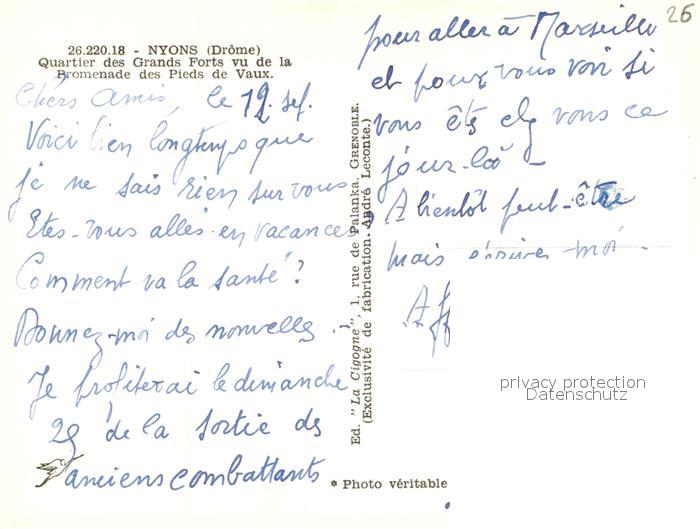 26.220.18 - NYONS (Drôme)
Quartier des Grands Forts vu de la
Promenade des Pieds de Vaux.
Chers Amis, le 12. sep.
Voici bien longtemps que
je ne sais rien sur vous
Etes-vous allés en vacances
Comment va la santé ?
Donnez-moi des nouvelles.
Je profiterai le dimanche
29 de la sortie des
anciens combattants
pour aller à Marseille
et pour vous voir si
vous êtes chez vous ce
jour-là -
A bientôt peut-être
mais écrivez-moi.
Aff
Ed. "La Cigogne", 1, rue de Palanka, GRENOBLE.
(Exclusivité de fabrication. André Leconte.)
* Photo véritable
26
privacy protection
Datenschutz